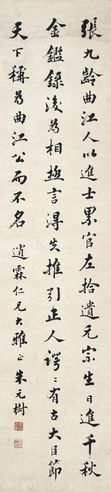 張九齡曲江人以進士累官左拾遺元宗生日進千秋
金鑑錄後為相極言得失推引正人諤諤有古大臣節
天下稱為曲江公而不名 逍霖仁兄大雅正 朱元樹